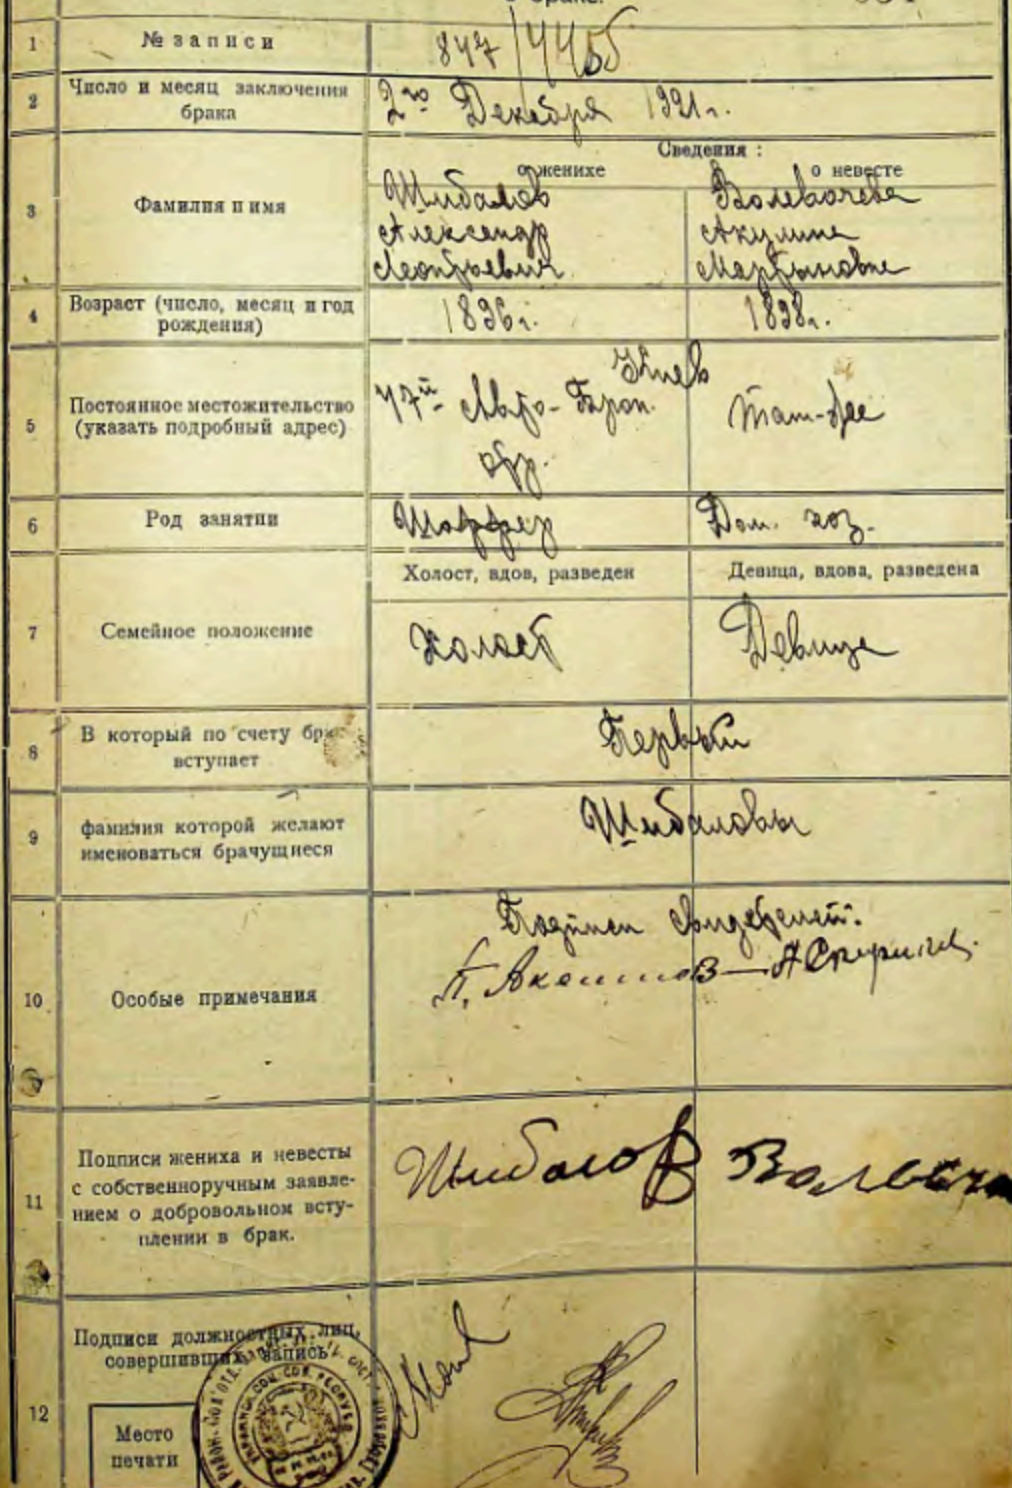 о браке.
1 № записи 847/4455
2 Число и месяц заключения брака 2го Декабря 1921 г.
Сведения :
о женихе о невесте
3 Фамилия и имя
Шибалов
Александр
Леонтьевич
Волевачева
Акулина
Мартыновна
4 Возраст (число, месяц и год рождения) 1896 г. 1898 г.
5 Постоянное местожительство (указать подробный адрес)
Киев
47й Авто-Брон.
отр.
Там-же
6 Род занятий Шоффер Дом. хоз.
Холост, вдов, разведен Девица, вдова, разведена
7 Семейное положение Холост Девица
8 В который по счету брак вступает Первый
9 фамилия которой желают именоваться брачущиеся Шибаловы
10 Особые примечания
Подписи свидетелей:
11 Подписи жениха и невесты
с собственноручным заявле-
нием о добровольном всту-
плении в брак.
Шибалов
12 Подписи должностных лиц,
совершивших запись
Место
печати